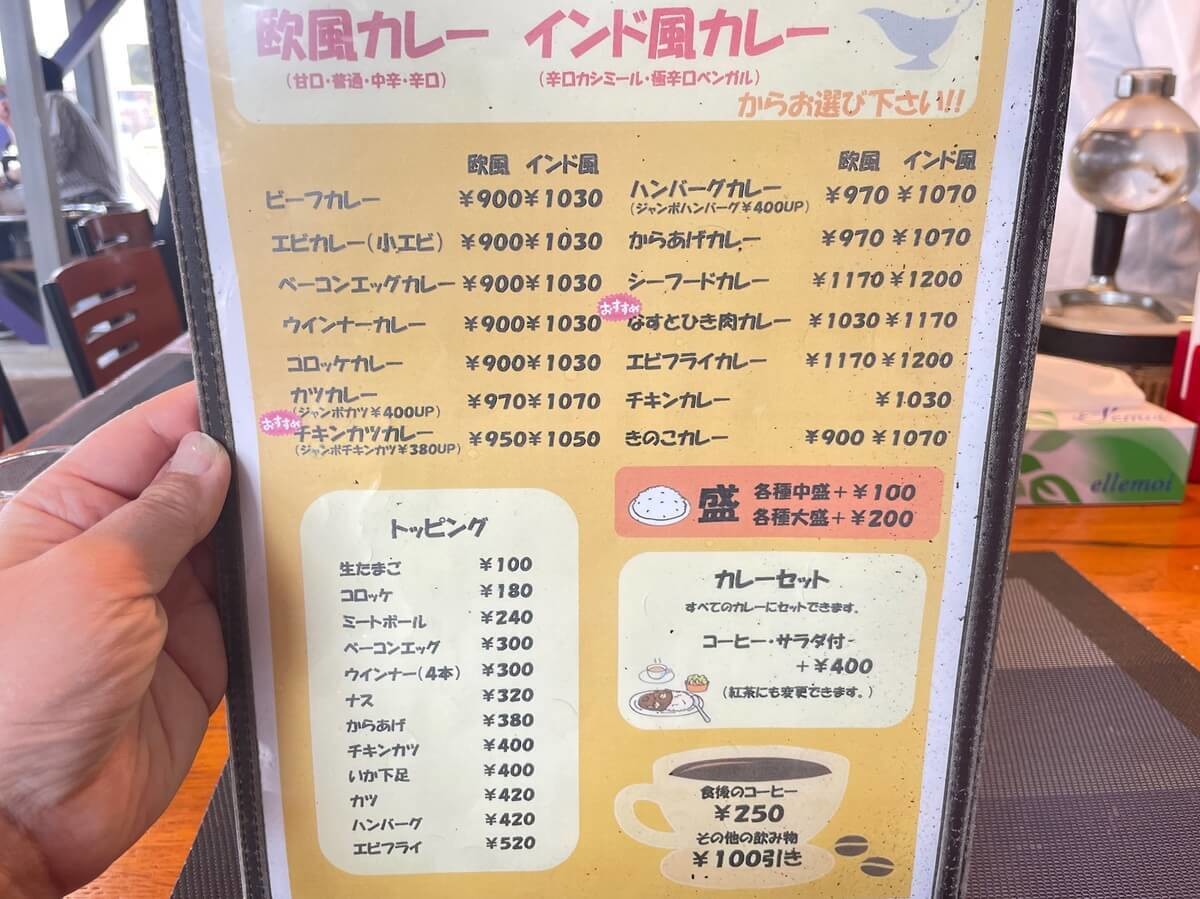 欧風カレー インド風カレー
(甘口・普通・中辛・辛口) (辛口カシミール・極辛口ベンガル)
からお選び下さい!!
欧風 インド風
ビーフカレー ¥900 ¥1030
エビカレー(小エビ) ¥900 ¥1030
ベーコンエッグカレー ¥900 ¥1030
ウインナーカレー ¥900 ¥1030
コロッケカレー ¥900 ¥1030
カツカレー ¥970 ¥1070
(ジャンボカツ¥400UP)
おすすめ
チキンカツカレー ¥950 ¥1050
(ジャンボチキンカツ¥380UP)
欧風 インド風
ハンバーグカレー ¥970 ¥1070
(ジャンボハンバーグ¥400UP)
からあげカレー ¥970 ¥1070
シーフードカレー ¥1170 ¥1200
おすすめ
なすとひき肉カレー ¥1030 ¥1170
エビフライカレー ¥1170 ¥1200
チキンカレー ¥1030
きのこカレー ¥900 ¥1070
盛 各種中盛+¥100
各種大盛+¥200
トッピング
生たまご ¥100
コロッケ ¥180
ミートボール ¥240
ベーコンエッグ ¥300
ウインナー(4本) ¥300
ナス ¥320
からあげ ¥380
チキンカツ ¥400
いか下足 ¥400
カツ ¥420
ハンバーグ ¥420
エビフライ ¥520
カレーセット
すべてのカレーにセットできます。
コーヒー・サラダ付
+¥400
(紅茶にも変更できます。)
食後のコーヒー
¥250
その他の飲み物
¥100引き
ellemoi